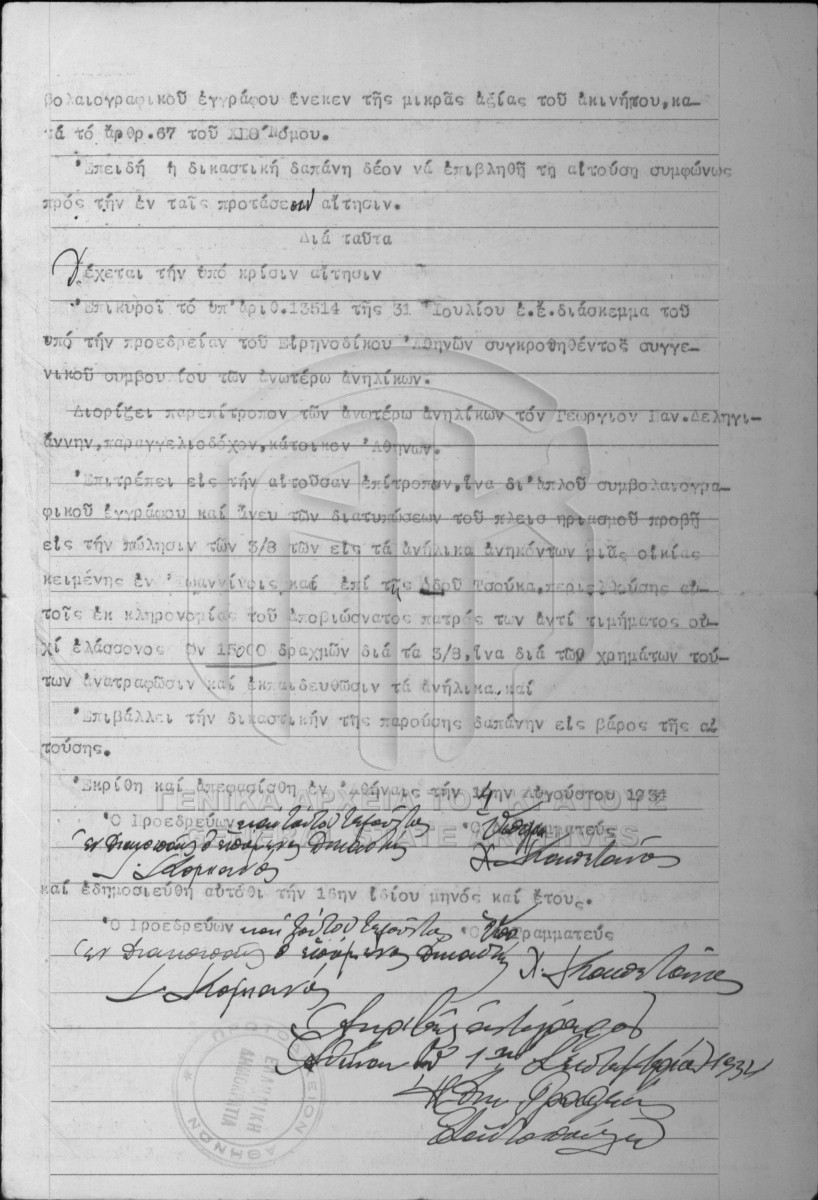 βολαιογραφικοῦ ἐγγράφου ἕνεκεν τῆς μικρᾶς ἀξίας τοῦ ἀκινήτου, κα-
τά τό ἄρθρ.67 τοῦ Νόμου.
Ἐπειδή ἡ δικαστική δαπάνη δέον νά ἐπιβληθῇ τῇ αἰτούσῃ συμφώνως
πρός τήν ἐν ταῖς προτάσεσιν αἴτησιν.
Διά ταῦτα
Δέχεται τήν ὑπό κρίσιν αἴτησιν
Ἐπικυροῖ τό ὑπ'ἀριθ.13514 τῆς 31 Ἰουλίου ἐ.ἔ.διάσκεμμα τοῦ
ὑπό τήν προεδρείαν τοῦ Εἰρηνοδίκου Ἀθηνῶν συγκροτηθέντος συγγε-
νικοῦ συμβουλίου τῶν ἀνωτέρω ἀνηλίκων.
Διορίζει παρεπίτροπον τῶν ἀνωτέρω ἀνηλίκων τόν Γεώργιον Παν.Δεληγι-
άννην,παραγγελιοδόχον,κάτοικον Ἀθηνῶν.
Ἐπιτρέπει εἰς τήν αἰτοῦσαν ἐπίτροπον,ἵνα δι'ἁπλοῦ συμβολαιογρα-
φικοῦ ἐγγράφου καί ἄνευ τῶν διατυπώσεων τοῦ πλειστηριασμοῦ προβῇ
εἰς τήν πώλησιν τῶν 3/8 τῶν εἰς τά ἀνήλικα ἀνηκόντων μιᾶς οἰκίας
κειμένης ἐν Ἰωαννίνοις καί ἐπί τῆς ὁδοῦ Τσούκα,περιελθούσης αὐ-
τοῖς ἐκ κληρονομίας τοῦ ἀποβιώσαντος πατρός των ἀντί τιμήματος οὐ-
χί ἐλάσσονος τῶν 15000 δραχμῶν διά τά 3/8,ἵνα διά τῶν χρημάτων τού-
των ἀνατραφῶσιν καί ἐκπαιδευθῶσιν τά ἀνήλικα,καί
Ἐπιβάλλει τήν δικαστικήν τῆς παρούσης δαπάνην εἰς βάρος τῆς αἰ-
τούσης.
Ἐκρίθη καί ἀπεφασίσθη ἐν Ἀθήναις τήν 14ην Αὐγούστου 1934
ΓΕΝΙΚΑ ΑΡΧΕΙΑ ΤΟΥ ΚΡΑΤΟΥΣ
GENERAL STATE ARCHIVES
Ὁ Προεδρεύων καί τούτου Ὁ Ὑπογραμματεύς
ἐν διακοπαῖς ὁ ἑπόμενος Δικαστής
Χ. Καπετάνος
καί ἐδημοσιεύθη αὐτόθι τήν 16ην ἰδίου μηνός καί ἔτους.
Ὁ Προεδρεύων καί τούτου Ὁ Ὑπογραμματεύς
ἐν διακοπαῖς ὁ ἑπόμενος Δικαστής Χ. Καπετάνος
Ἀκριβές ἀντίγραφον
Ἀθῆναι τῇ 1ῃ Σεπτεμβρίου 1934
ΠΡΩΤΟΔΙΚΕΙΟΝ ΑΘΗΝΩΝ
ΕΛΛΗΝΙΚΗ
ΔΗΜΟΚΡΑΤΙΑ